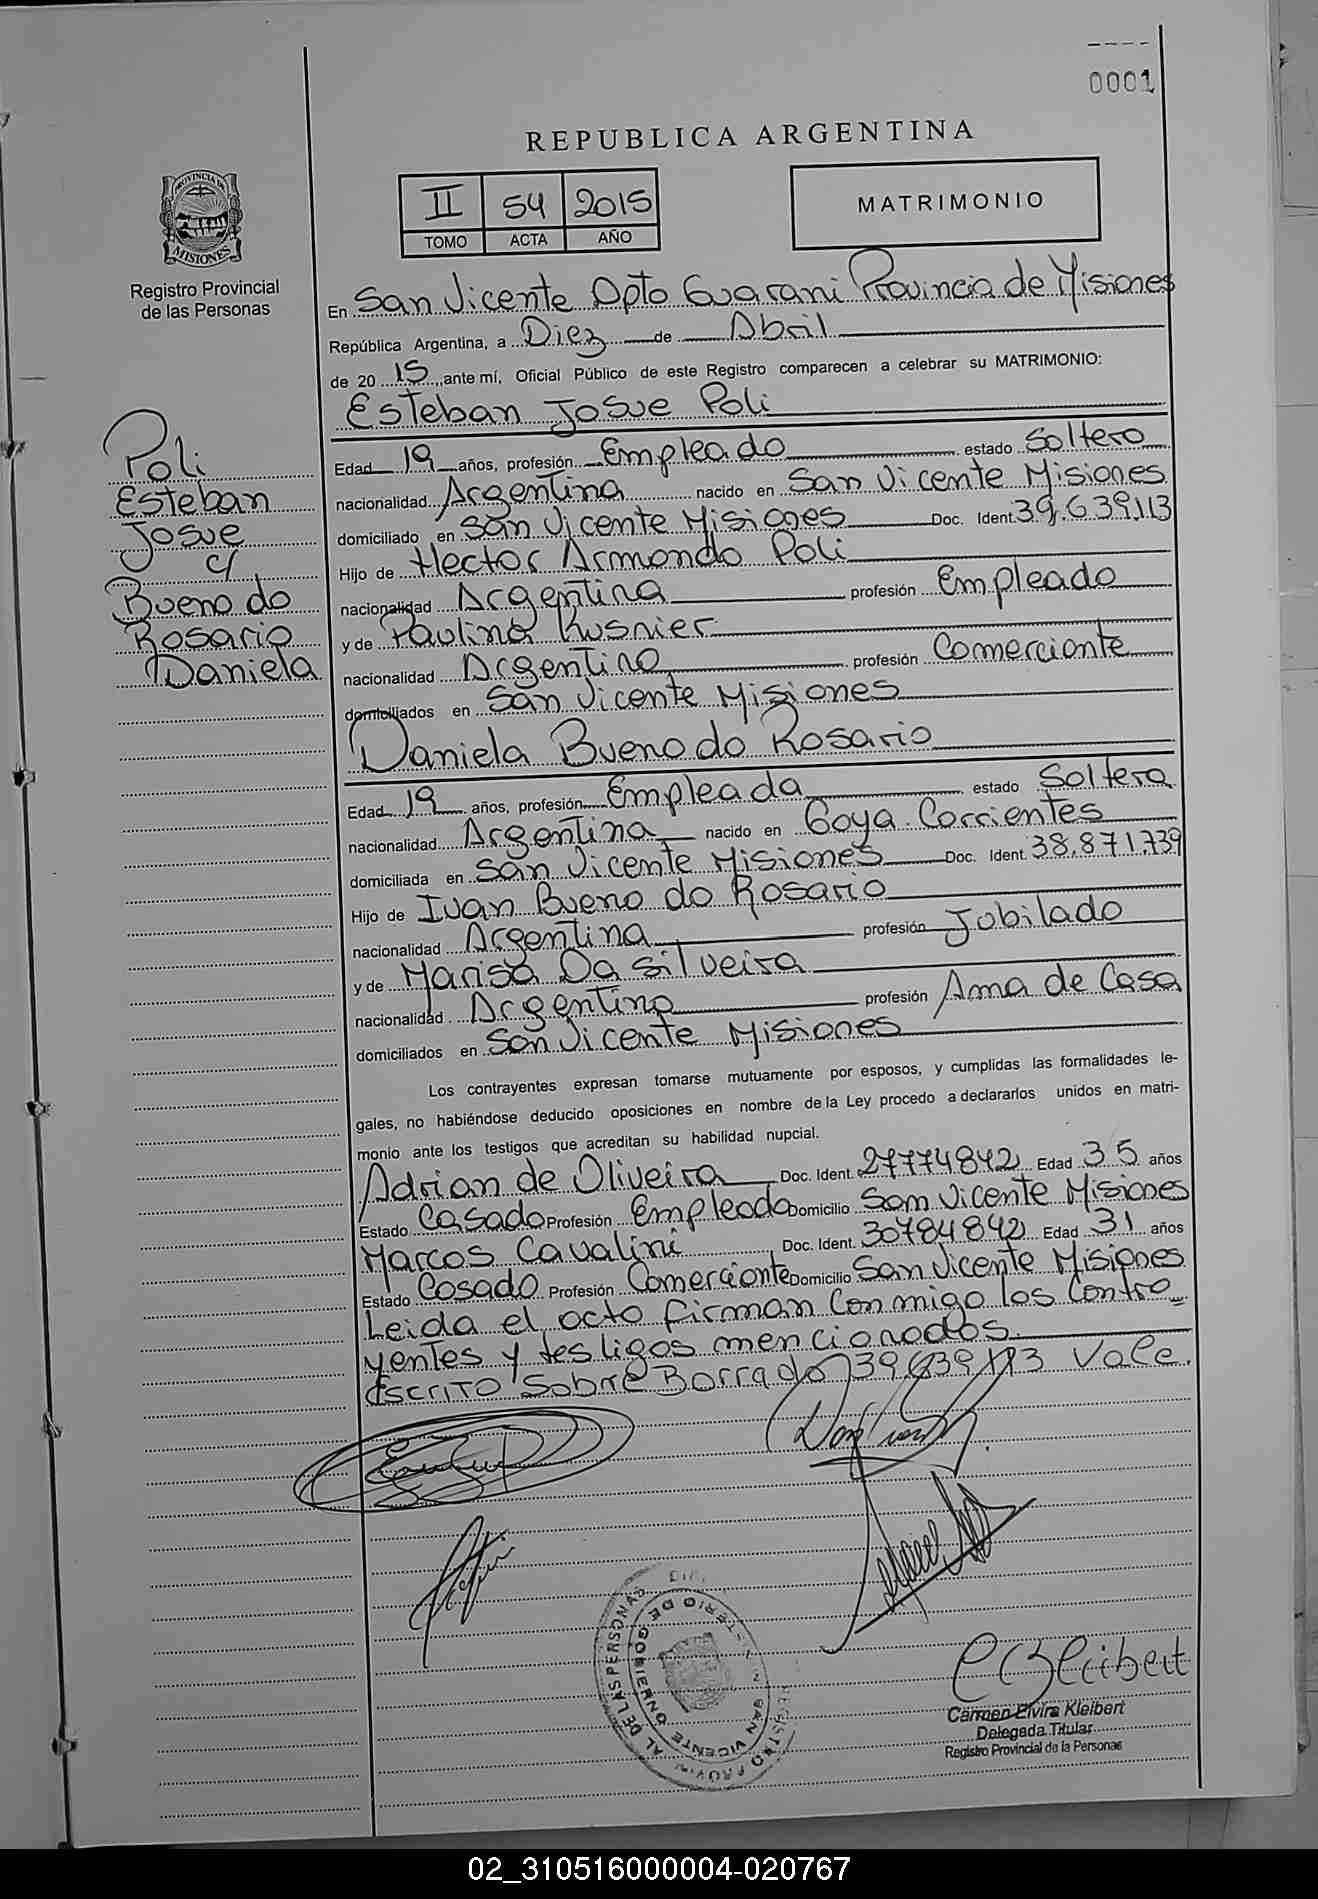 0001
REPUBLICA ARGENTINA
II 54 2015
TOMO ACTA AÑO
MATRIMONIO
PROVINCIA DE
MISIONES
Registro Provincial
de las Personas
En San Vicente Dpto Guarani Provincia de Misiones
República Argentina, a Diez de Abril
de 2015, ante mí, Oficial Público de este Registro comparecen a celebrar su MATRIMONIO:
Esteban Josue Poli
Poli
Esteban
Josue
c/
Bueno do
Rosario
Daniela
Edad 19 años, profesión Empleado estado Soltero
nacionalidad Argentina nacido en San Vicente Misiones
domiciliado en San Vicente Misiones Doc. Ident. 39.639.113
Hijo de Hector Armondo Poli
nacionalidad Argentina profesión Empleado
y de Paulina Kusnier
nacionalidad Argentina profesión Comerciante
domiciliados en San Vicente Misiones
Daniela Bueno do Rosario
Edad 19 años, profesión Empleada estado Soltera
nacionalidad Argentina nacido en Goya. Corrientes
domiciliada en San Vicente Misiones Doc. Ident. 38.871.739
Hijo de Ivan Bueno do Rosario
nacionalidad Argentina profesión Jobilado
y de Marisa Da silveira
nacionalidad Argentina profesión Ama de Casa
domiciliados en San Vicente Misiones
Los contrayentes expresan tomarse mutuamente por esposos, y cumplidas las formalidades le-
gales, no habiéndose deducido oposiciones en nombre de la Ley procedo a declararlos unidos en matri-
monio ante los testigos que acreditan su habilidad nupcial.
Adrian de Oliveira Doc. Ident. 27774842 Edad 35 años
Estado Casado Profesión Empleado Domicilio San Vicente Misiones
Marcos Cavalini Doc. Ident. 30784842 Edad 31 años
Estado Casado Profesión Comerciante Domicilio San Vicente Misiones
Leida el acta firman Conmigo los Contra
yentes y testigos mencionados.
Escrito Sobre Borrado 39.639.113 Vale.
Carmen Elvira Kleibert
Delegada Titular
Registro Provincial de la Personas
SAN VICENTE
02_310516000004-020767